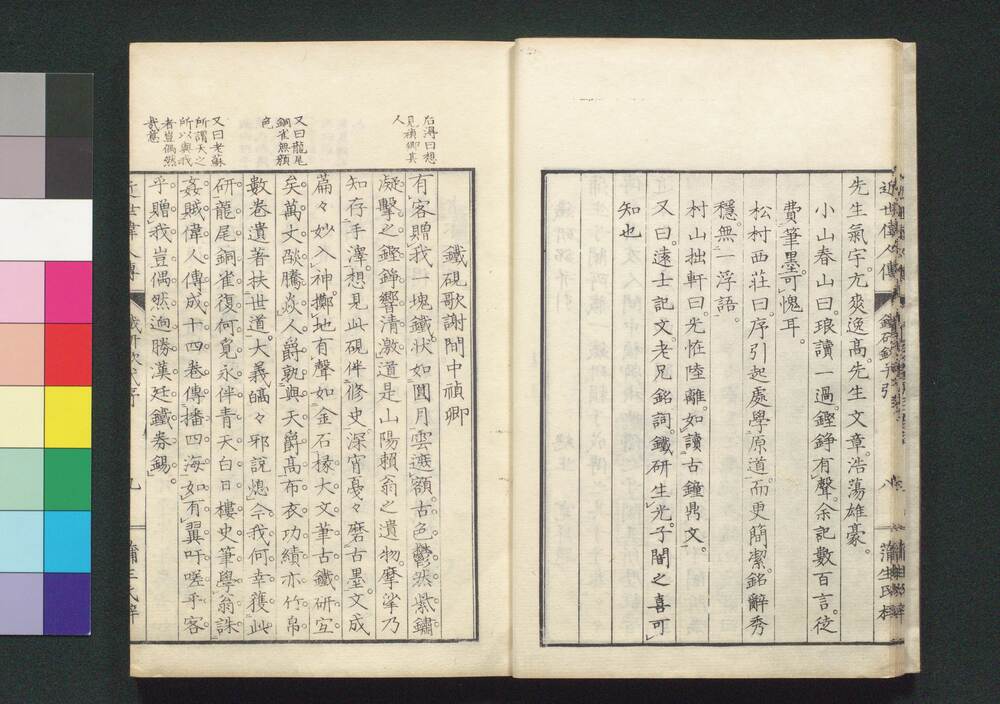 近世偉人傳
鐵研銘并引
八
蒲生氏梓
先生氣宇亢爽逸高。先生文章浩蕩雄豪。
小山春山曰。琅讀一過。鏗錚有聲。余記數百言。徒
費筆墨。可愧耳。
松村西荘曰。序引起處學原道。而更簡潔。銘辭秀
穩。無一浮語。
村山拙軒曰。光恠陸離。如讀古鐘鼎文。
又曰。遠士記文。老兄銘詞。鐵研生光。子誾之喜可
知也
鐵硯歌謝問中禎卿
有客贈我一塊鐵。狀如圓月雲遮額。古色鬱然紫鏽
凝。擊之鏗錚響清激。道是山陽賴翁之遺物。摩挲乃
知存手澤。想見此硯伴修史。深宵戞々磨古墨。文成
篇々妙入神。擲地有聲如金石。椽大文筆古鐵研。宜
矣萬丈燄騰炎。人爵孰與天爵高。布衣功績亦竹帛
數卷遺著扶世道。大義皭々邪說熄。今我何幸獲此
研。龍尾銅雀復何覓。永伴青天白日樓。史筆學翁誅
姦賊。偉人傳成十四卷。傳播四海如有翼。吁嗟乎客
乎贈我豈偶然。逈勝漢廷鐵券錫。
石濤曰想
見禎卿其
人
又曰龍尾
銅雀無顏
色
又曰老蘇
所謂天之
所以與我
者豈偶然
哉意
近世偉人傳
九
蒲生氏梓